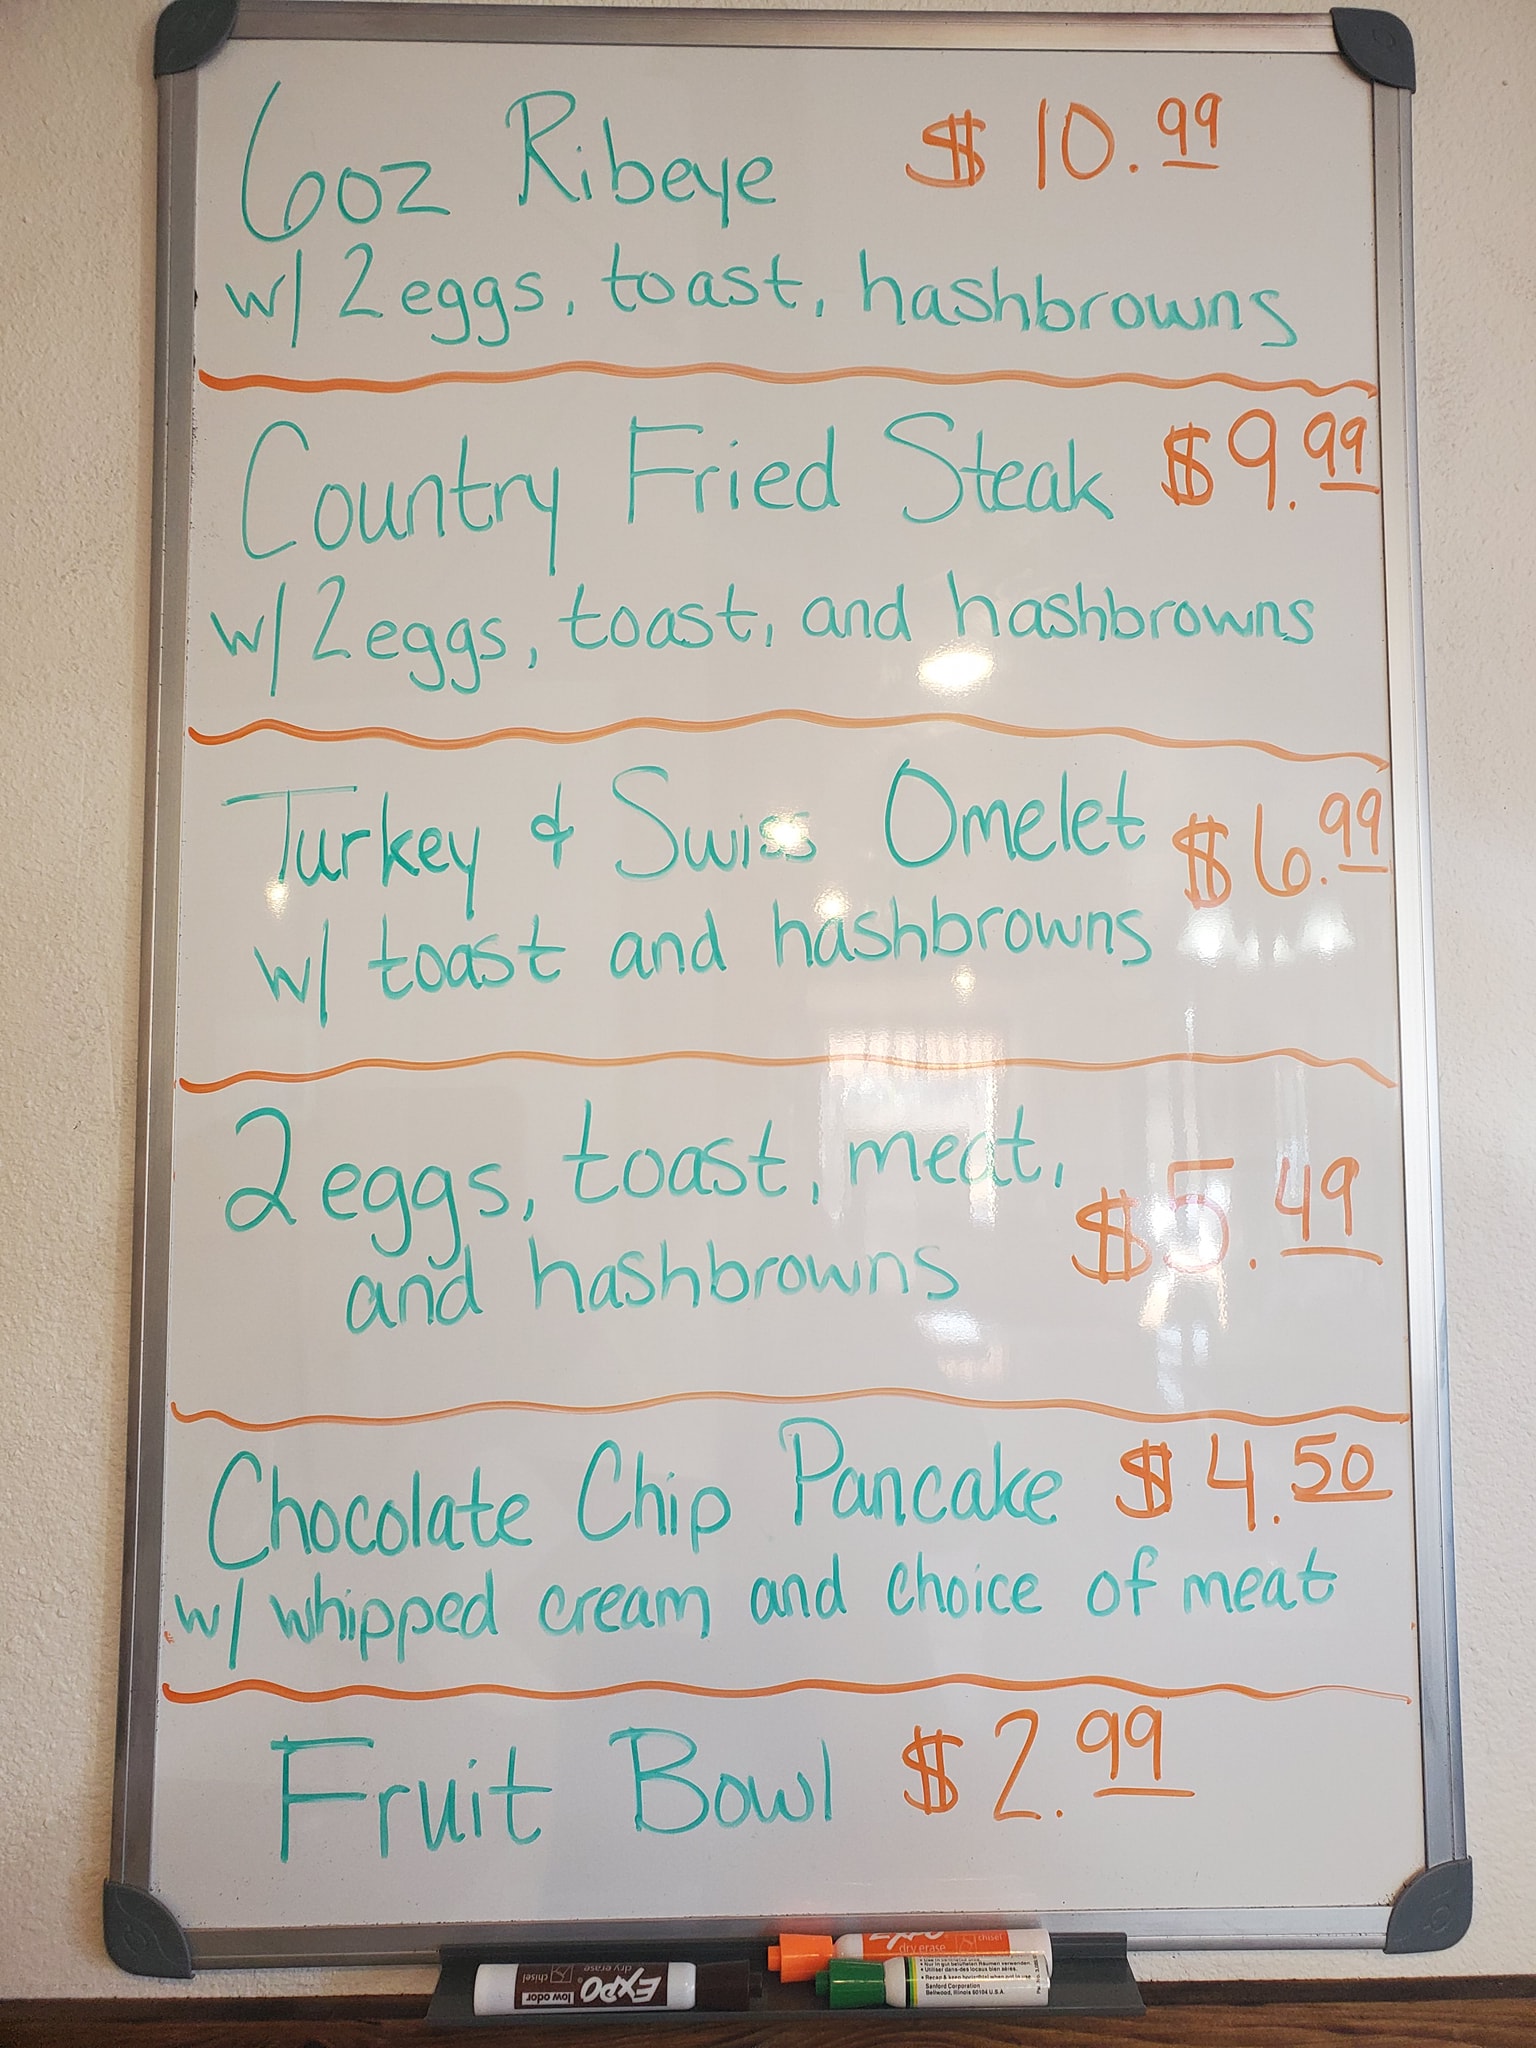 6oz Ribeye $10.99
w/ 2 eggs, toast, hashbrowns
Country Fried Steak $9.99
w/ 2 eggs, toast, and hashbrowns
Turkey & Swiss Omelet $6.99
w/ toast and hashbrowns
2 eggs, toast, meat,
and hashbrowns $5.49
Chocolate Chip Pancake $4.50
w/ whipped cream and choice of meat
Fruit Bowl $2.99
EXPO
low odor
dry erase
chisel
EXPO
dry erase
chisel
Sanford Corporation
Bellwood, Illinois 60104 U.S.A.